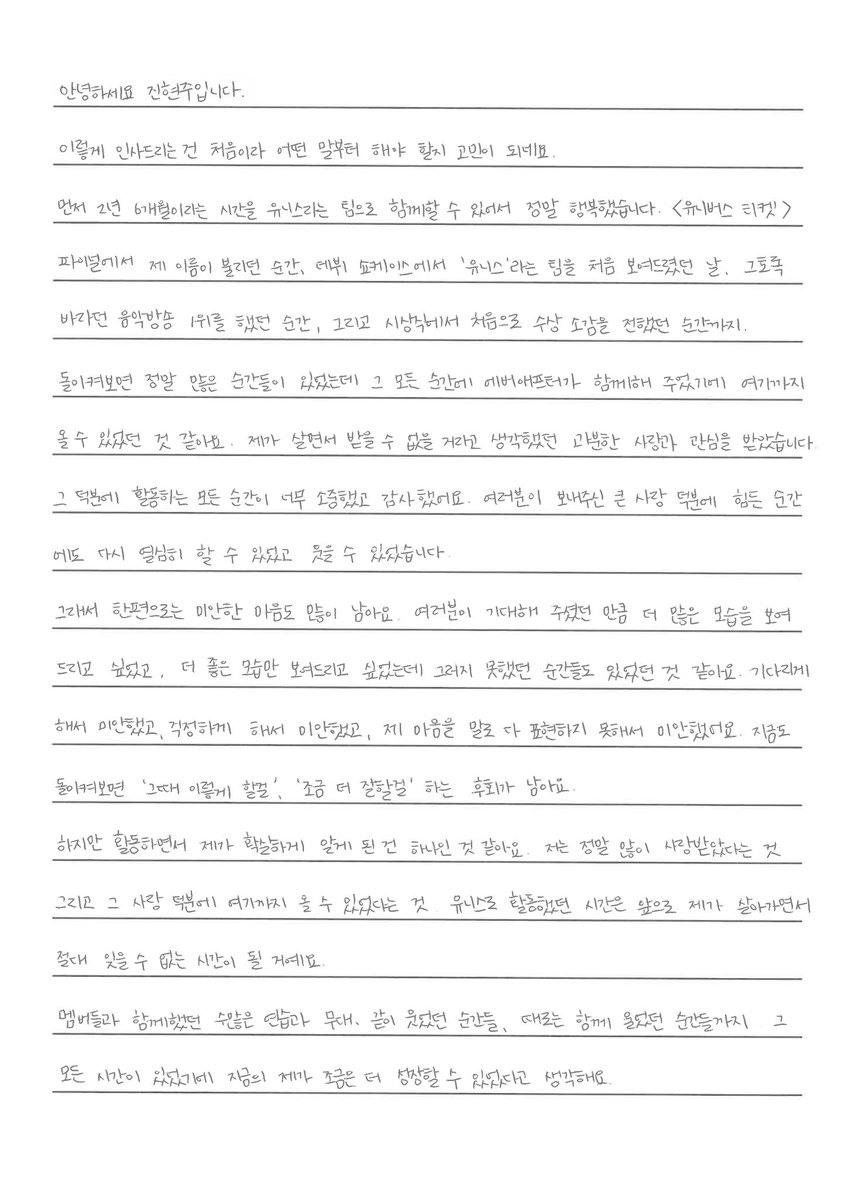 안녕하세요 진현주입니다.
이렇게 인사드리는 건 처음이라 어떤 말부터 해야 할지 고민이 되네요.
먼저 2년 6개월이라는 시간을 유니스라는 팀으로 함께할 수 있어서 정말 행복했습니다. <유니버스 티켓>
파이널에서 제 이름이 불리던 순간, 데뷔 쇼케이스에서 '유니스'라는 팀을 처음 보여드렸던 날, 그토록
바라던 음악방송 1위를 했던 순간, 그리고 시상식에서 처음으로 수상 소감을 전했던 순간까지.
돌이켜보면 정말 많은 순간들이 있었는데 그 모든 순간에 에버애프터가 함께해 주었기에 여기까지
올 수 있었던 것 같아요. 제가 살면서 받을 수 없을 거라고 생각했던 과분한 사랑과 관심을 받았습니다.
그 덕분에 활동하는 모든 순간이 너무 소중했고 감사했어요. 여러분이 보내주신 큰 사랑 덕분에 힘든 순간
에도 다시 열심히 할 수 있었고 웃을 수 있었습니다.
그래서 한편으로는 미안한 마음도 많이 남아요. 여러분이 기대해 주셨던 만큼 더 많은 모습을 보여
드리고 싶었고, 더 좋은 모습만 보여드리고 싶었는데 그러지 못했던 순간들도 있었던 것 같아요. 기다리게
해서 미안했고, 걱정하게 해서 미안했고, 제 마음을 말로 다 표현하지 못해서 미안했어요. 지금도
돌이켜보면 '그때 이렇게 할걸', '조금 더 잘할걸' 하는 후회가 남아요.
하지만 활동하면서 제가 확실하게 알게 된 건 하나인 것 같아요. 저는 정말 많이 사랑받았다는 것
그리고 그 사랑 덕분에 여기까지 올 수 있었다는 것. 유니스로 활동했던 시간은 앞으로 제가 살아가면서
절대 잊을 수 없는 시간이 될 거예요.
멤버들과 함께했던 수많은 연습과 무대, 같이 웃었던 순간들, 때로는 함께 울었던 순간들까지. 그
모든 시간이 있었기에 지금의 제가 조금은 더 성장할 수 있었다고 생각해요.